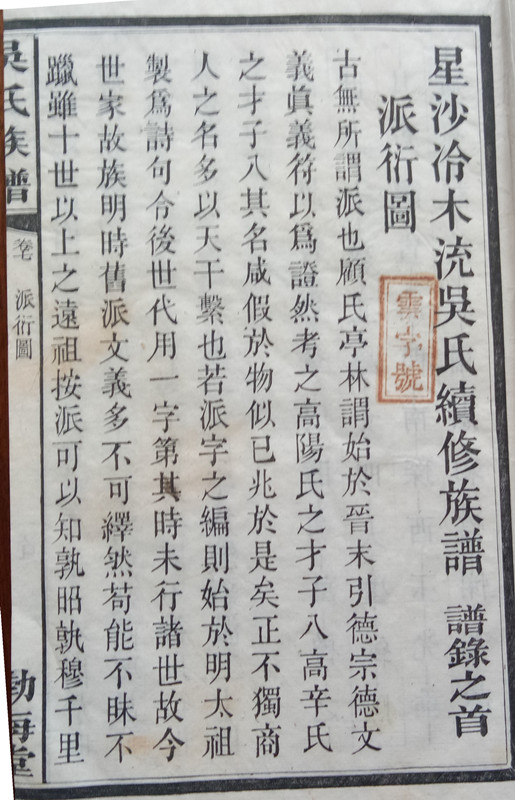 星沙冷木流吳氏續修族譜 譜錄之首
派衍圖
雲字號
古無所謂派也顧氏亭林謂始於晉末引德宗德文
義眞義符以爲證然考之高陽氏之才子八高辛氏
之才子八其名咸假於物似已兆於是矣正不獨商
人之名多以天干繫也若派字之編則始於明太祖
製爲詩句令後世代用一字第其時未行諸世故今
世家故族明時舊派文義多不可繹然苟能不昧不
躐雖十世以上之遠祖按派可以知孰昭孰穆千里
吳氏族譜 卷七 派衍圖 勃海堂